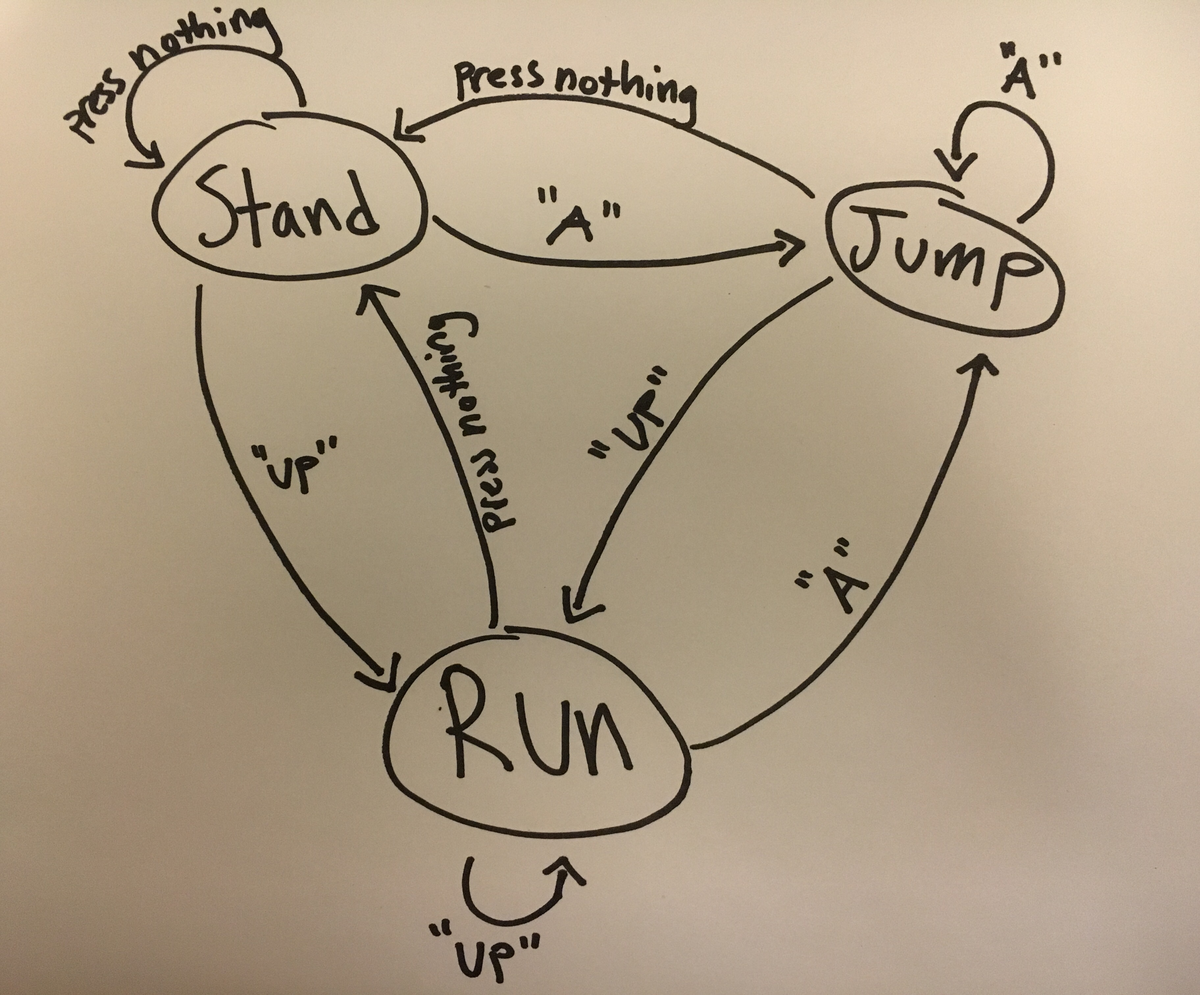 Press nothing
Press nothing
"A"
Stand
"A"
Jump
Press nothing
"UP"
"UP"
"A"
RUn
"UP"